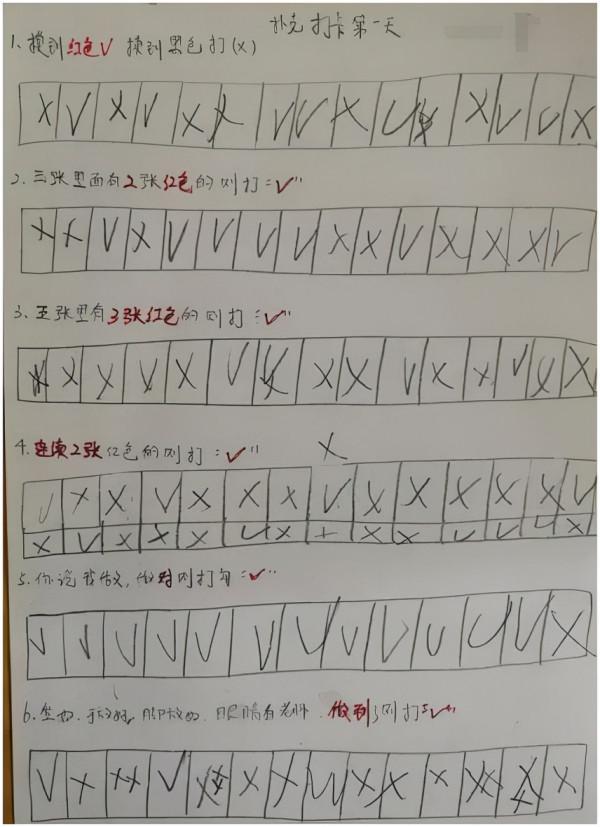 扑克打卡第一天
1、摸到红色V 摸到黑色打(X)
X V X V X X V V X V X X V V X
2、三张里面有2张红色的则打="✓"
X X V X V V V V X X V X X X V
3、五张里有3张红色的则打="✓"
X X X V X V X X X V X X V X X
4、连续2张红色的则打="✓" X
V X X V X X X V X X X X X V
X V X X X V X + X X V V V X
5、你说我做,做对则打勾="✓"
V V V V V V V V V V V V X
6、坐好、手放好、脚放好、眼睛看老师、做到了则打="✓"
V X XX V X X X V X X X XX X X